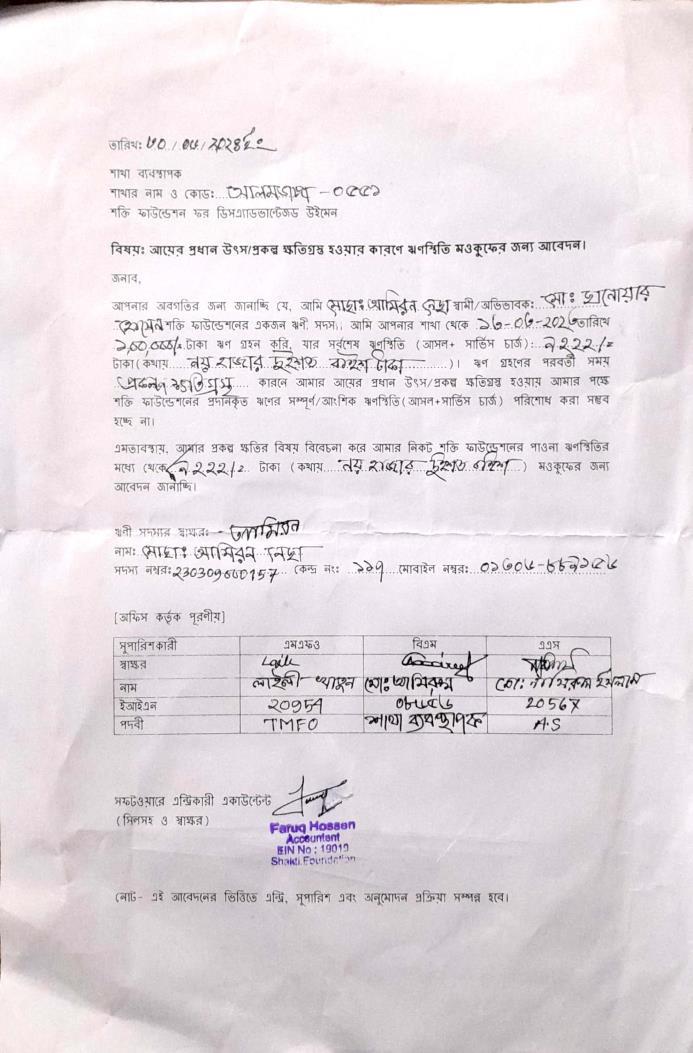 তারিখ: ৩০/০৬/২০২৪ ইং
শাখা ব্যবস্থাপক
শাখার নাম ও কোড: আলমডাঙ্গা - ০৫৫১
শক্তি ফাউন্ডেশন ফর ডিসএ্যাডভান্টেজড উইমেন
বিষয়: আয়ের প্রধান উৎস/প্রকল্প ক্ষতিগ্রস্থ হওয়ার কারণে ঋণস্থিতি মওকুফের জন্য আবেদন।
জনাব,
আপনার অবগতির জন্য জানাচ্ছি যে, আমি মোছাঃ আমিরন নেছা স্বামী/অভিভাবক: মোঃ
হোসেন শক্তি ফাউন্ডেশনের একজন ঋণী সদস্য। আমি আপনার শাখা থেকে তারিখে
টাকা ঋণ গ্রহন করি, যার সর্বশেষ ঋণস্থিতি (আসল+ সার্ভিস চার্জ): ৯২২২/=
টাকা (কথায় নয় হাজার দুইশত বাইশ টাকা)। ঋণ গ্রহণের পরবর্তী সময়
প্রকল্প ক্ষতিগ্রস্থ কারনে আমার আয়ের প্রধান উৎস/প্রকল্প ক্ষতিগ্রস্থ হওয়ায় আমার পক্ষে
শক্তি ফাউন্ডেশনের প্রদানকৃত ঋণের সম্পূর্ণ/আংশিক ঋণস্থিতি (আসল+সার্ভিস চার্জ) পরিশোধ করা সম্ভব
হচ্ছে না।
এমতাবস্থায়, আমার প্রকল্প ক্ষতির বিষয় বিবেচনা করে আমার নিকট শক্তি ফাউন্ডেশনের পাওনা ঋণস্থিতির
মধ্যে থেকে ৯২২২/= টাকা (কথায় নয় হাজার দুইশত বাইশ) মওকুফের জন্য
আবেদন জানাচ্ছি।
ঋণী সদস্যর স্বাক্ষর: আমিরন
নাম: মোছাঃ আমিরন নেছা
সদস্য নম্বর: 230309600157 কেন্দ্র নং: ১১৭ মোবাইল নম্বর:
[অফিস কর্তৃক পূরণীয়]
সুপারিশকারী এমএফও বিএম এএস
স্বাক্ষর
নাম লাইলী খাতুন মোঃ মোঃ ইসলাম
ইআইএন 20954
পদবী TMFO শাখা ব্যবস্থাপক A.S
সফটওয়ারে এন্ট্রিকারী একাউন্টেন্ট
(সিলসহ ও স্বাক্ষর)
Faruq Hossen
Accountant
EIN No : 19019
Shakti Foundation
নোট- এই আবেদনের ভিত্তিতে এন্ট্রি, সুপারিশ এবং অনুমোদন প্রক্রিয়া সম্পন্ন হবে।